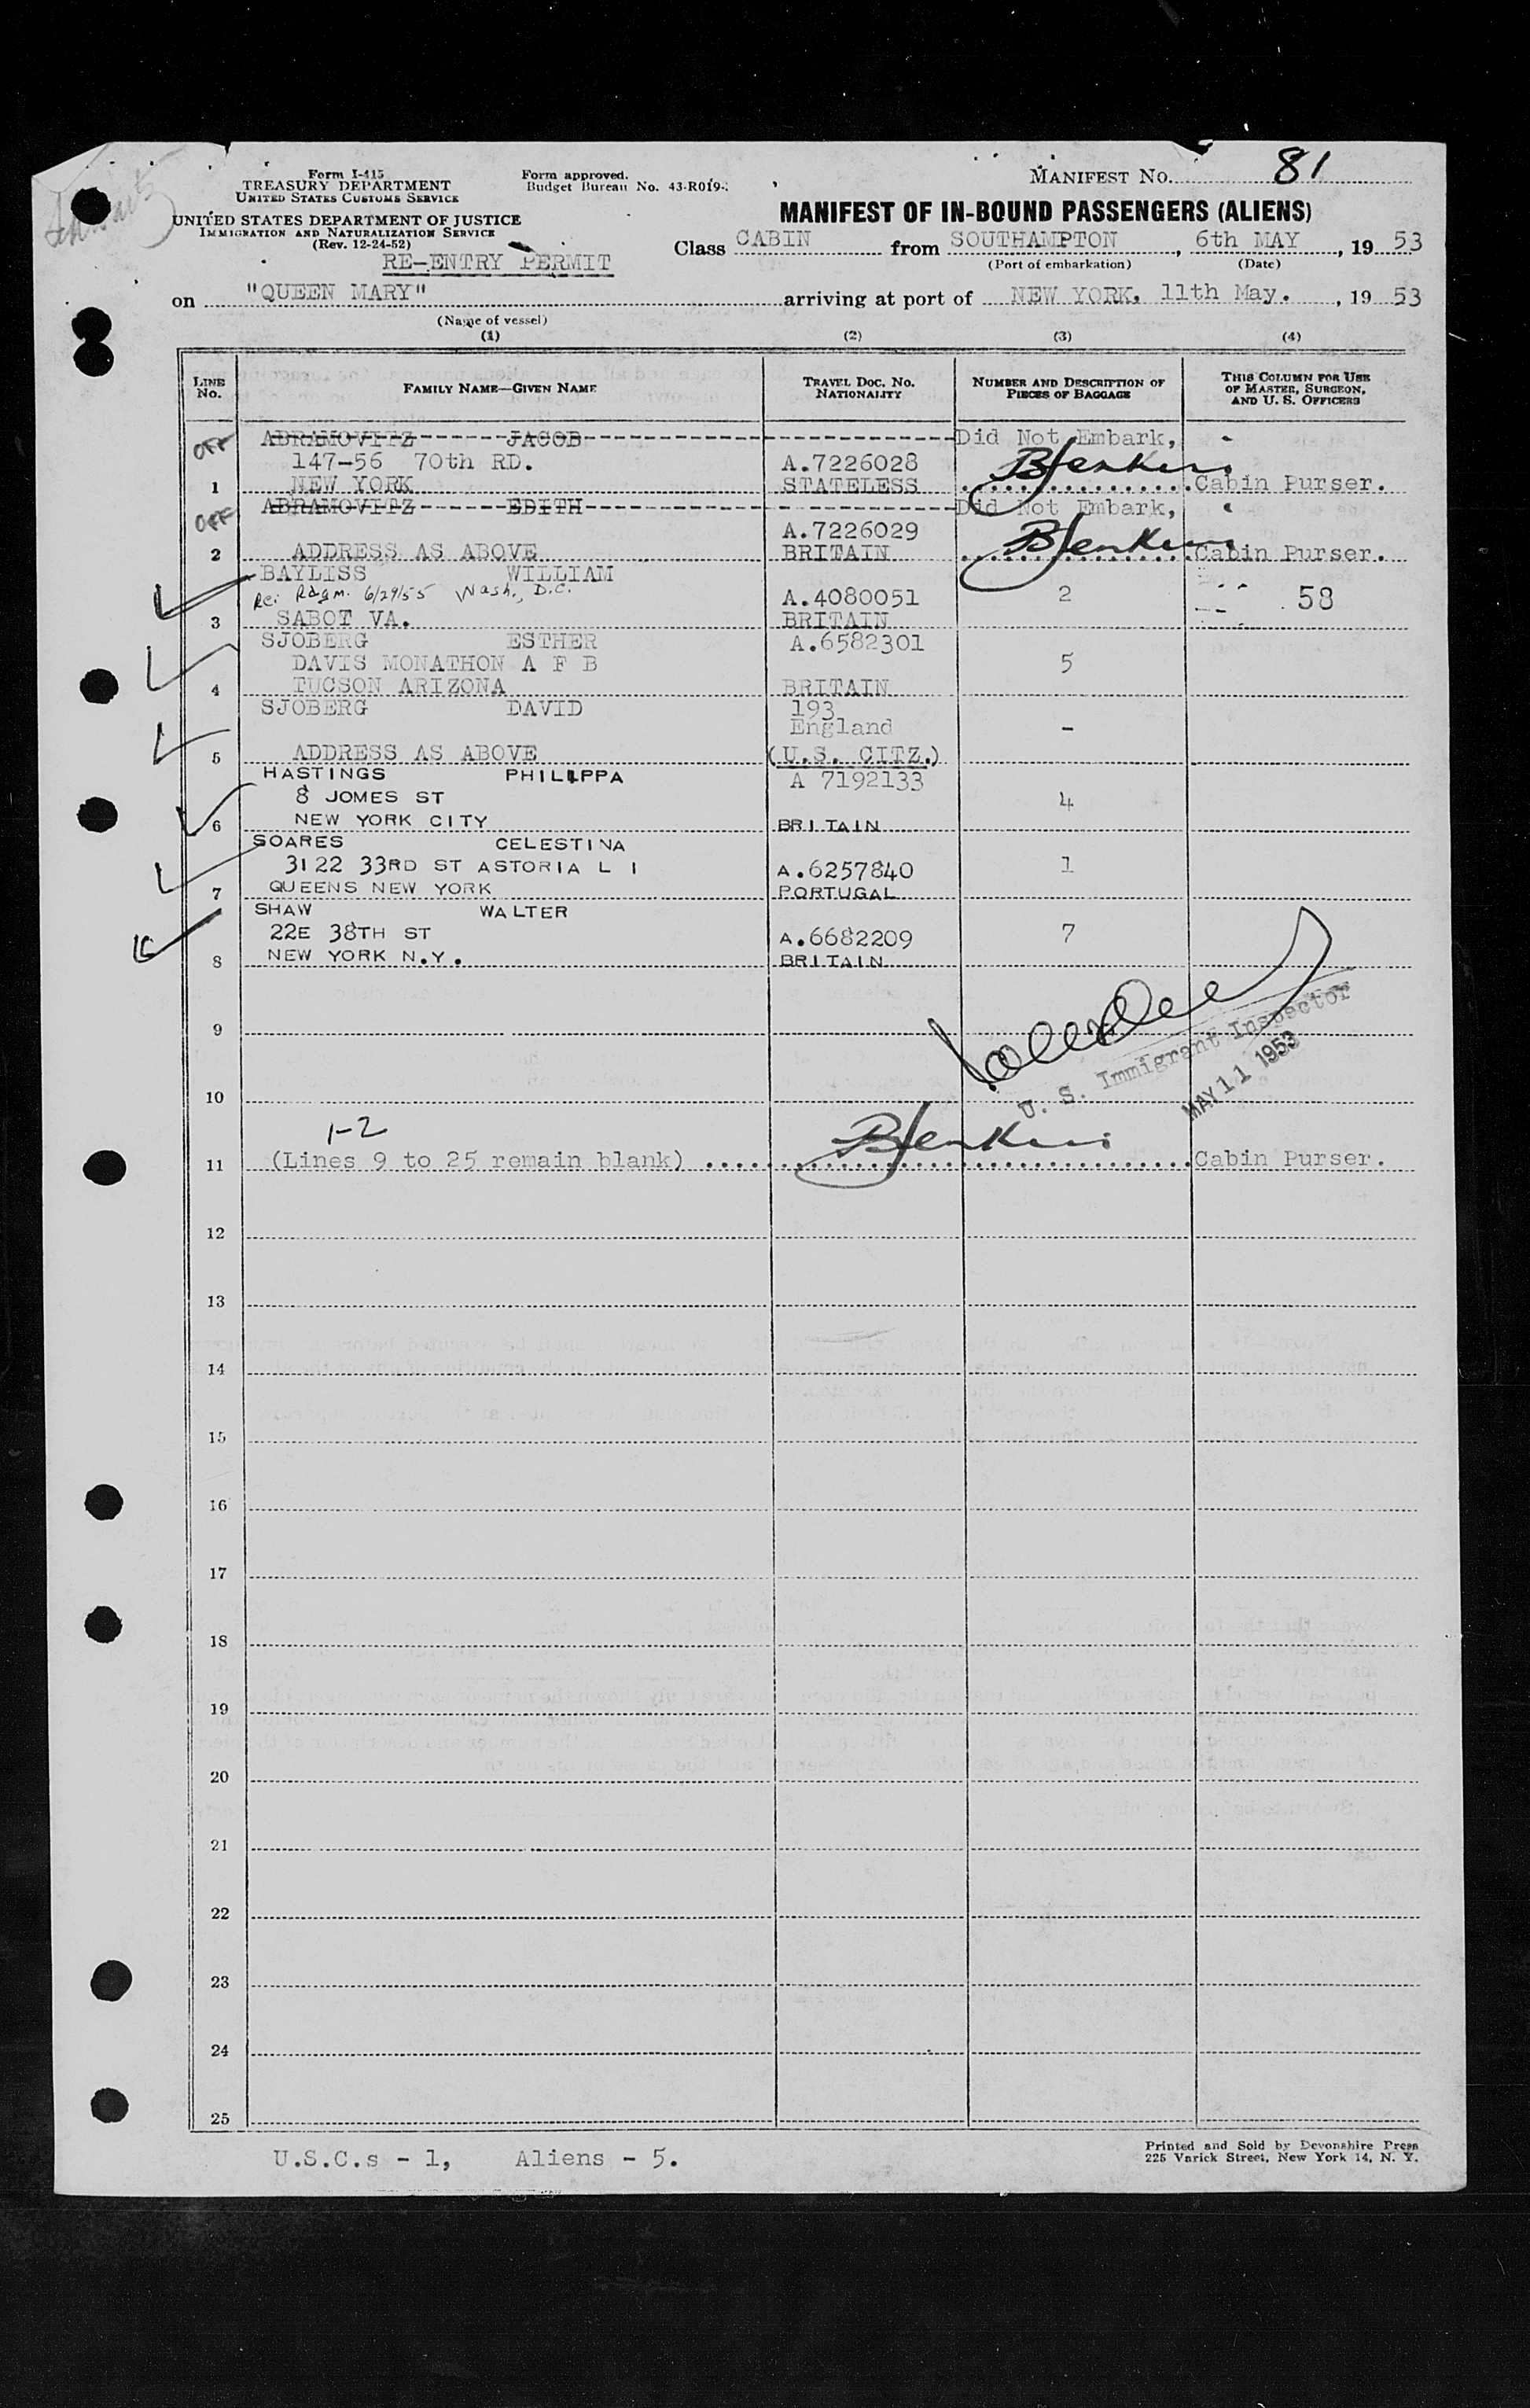 Form I-415
TREASURY DEPARTMENT
UNITED STATES CUSTOMS SERVICE
UNITED STATES DEPARTMENT OF JUSTICE
IMMIGRATION AND NATURALIZATION SERVICE
(Rev. 12-24-52)
RE-ENTRY PERMIT
Form approved.
Budget Bureau No. 43-R019-
MANIFEST NO. 81
MANIFEST OF IN-BOUND PASSENGERS (ALIENS)
Class CABIN from SOUTHAMPTON, 6th MAY, 19 53
(Port of embarkation) (Date)
on "QUEEN MARY" arriving at port of NEW YORK. 11th May., 19 53
(Name of vessel)
(1) (2) (3) (4)
LINE No. FAMILY NAME—GIVEN NAME TRAVEL DOC. NO. NATIONALITY NUMBER AND DESCRIPTION OF PIECES OF BAGGAGE THIS COLUMN FOR USE OF MASTER, SURGEON, AND U. S. OFFICERS
OFF ABRAMOVITZ JACOB Did Not Embark,
147-56 70th RD. A.7226028 BJenkins
1 NEW YORK STATELESS Cabin Purser.
OFF ABRAMOVITZ EDITH Did Not Embark,
A.7226029 BJenkins
2 ADDRESS AS ABOVE BRITAIN Cabin Purser.
BAYLISS WILLIAM
Re: Rdgm. 6/29/55 Wash., D.C. A.4080051 2 58
3 SABOT VA. BRITAIN
SJOBERG ESTHER A.6582301
DAVIS MONATHON A F B 5
4 TUCSON ARIZONA BRITAIN
SJOBERG DAVID 193
England -
5 ADDRESS AS ABOVE (U.S. CITZ.)
HASTINGS PHILIPPA A 7192133
8 JOMES ST 4
6 NEW YORK CITY BRITAIN
SOARES CELESTINA
3122 33RD ST ASTORIA L I A.6257840 1
7 QUEENS NEW YORK PORTUGAL
SHAW WALTER
22E 38TH ST A.6682209 7
8 NEW YORK N.Y. BRITAIN
9
U. S. Immigrant Inspector
MAY 11 1953
10
1-2
11 (Lines 9 to 25 remain blank) BJenkins Cabin Purser.
12
13
14
15
16
17
18
19
20
21
22
23
24
25
U.S.C.s - 1, Aliens - 5.
Printed and Sold by Devonshire Press
225 Varick Street, New York 14, N. Y.